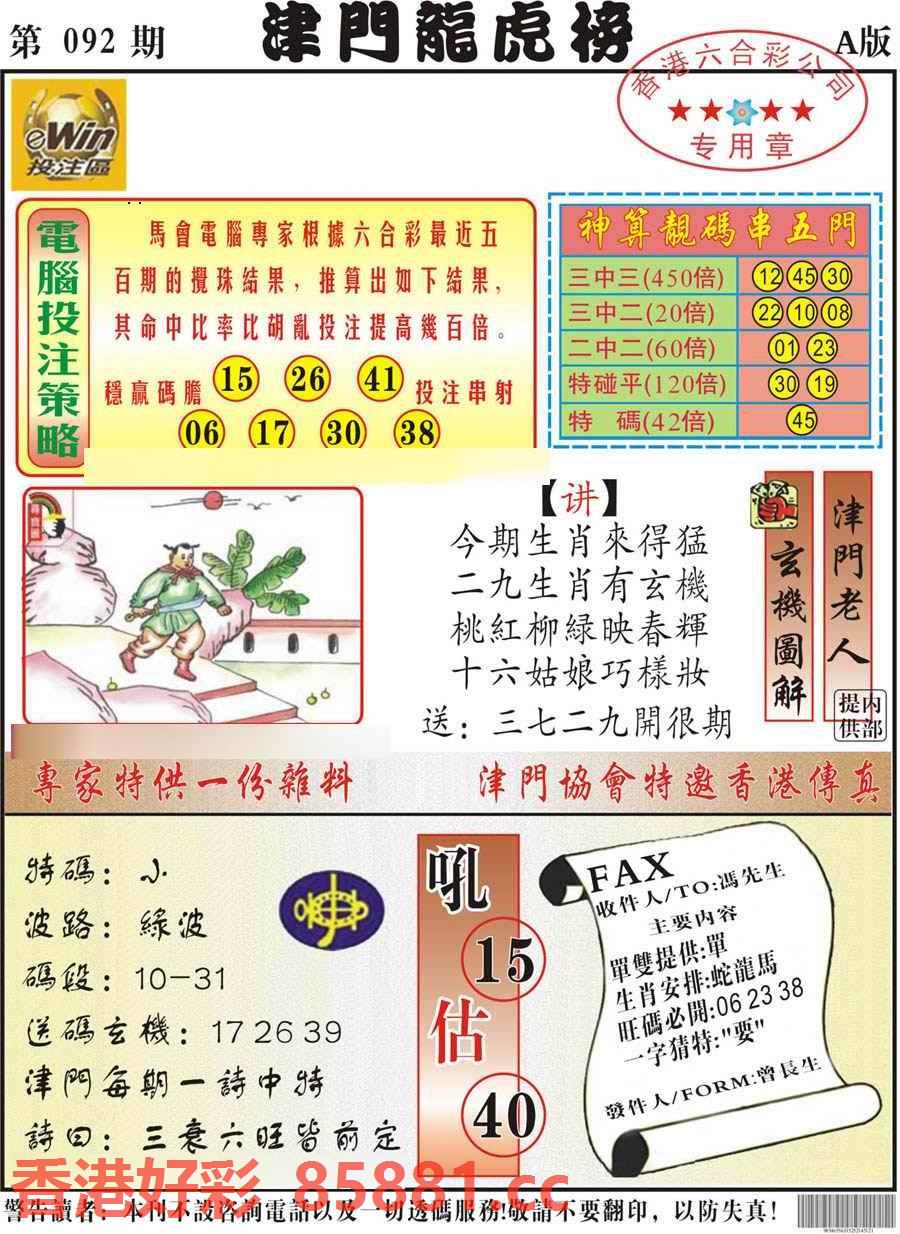 第 092 期
津門龍虎榜
A版
香港六合彩公司
专用章
eWin
投注區
電腦投注策略
馬會電腦專家根據六合彩最近五
百期的攪珠結果，推算出如下結果，
其命中比率比胡亂投注提高幾百倍。
穩贏碼膽 15 26 41 投注串射
06 17 30 38
神算靚碼串五門
三中三(450倍) 12 45 30
三中二(20倍) 22 10 08
二中二(60倍) 01 23
特碰平(120倍) 30 19
特 碼(42倍) 45
【讲】
今期生肖來得猛
二九生肖有玄機
桃紅柳緑映春輝
十六姑娘巧樣妝
送：三七二九開很期
玄機圖解
津門老人
内部提供
專家特供一份雜料
津門協會特邀香港傳真
特碼：小
波路：綠波
碼段：10-31
送碼玄機：17 26 39
津門每期一詩中特
詩曰：三衰六旺皆前定
吼
15
估
40
FAX
收件人/TO:馮先生
主要内容
單雙提供:單
生肖安排:蛇龍馬
旺碼必開:06 23 38
一字猜特:"要"
發件人/FORM:曾長生
香港好彩 85881.cc
警告讀者：本刊不設咨詢電話以及一切透碼服務!敬請不要翻印，以防失真!